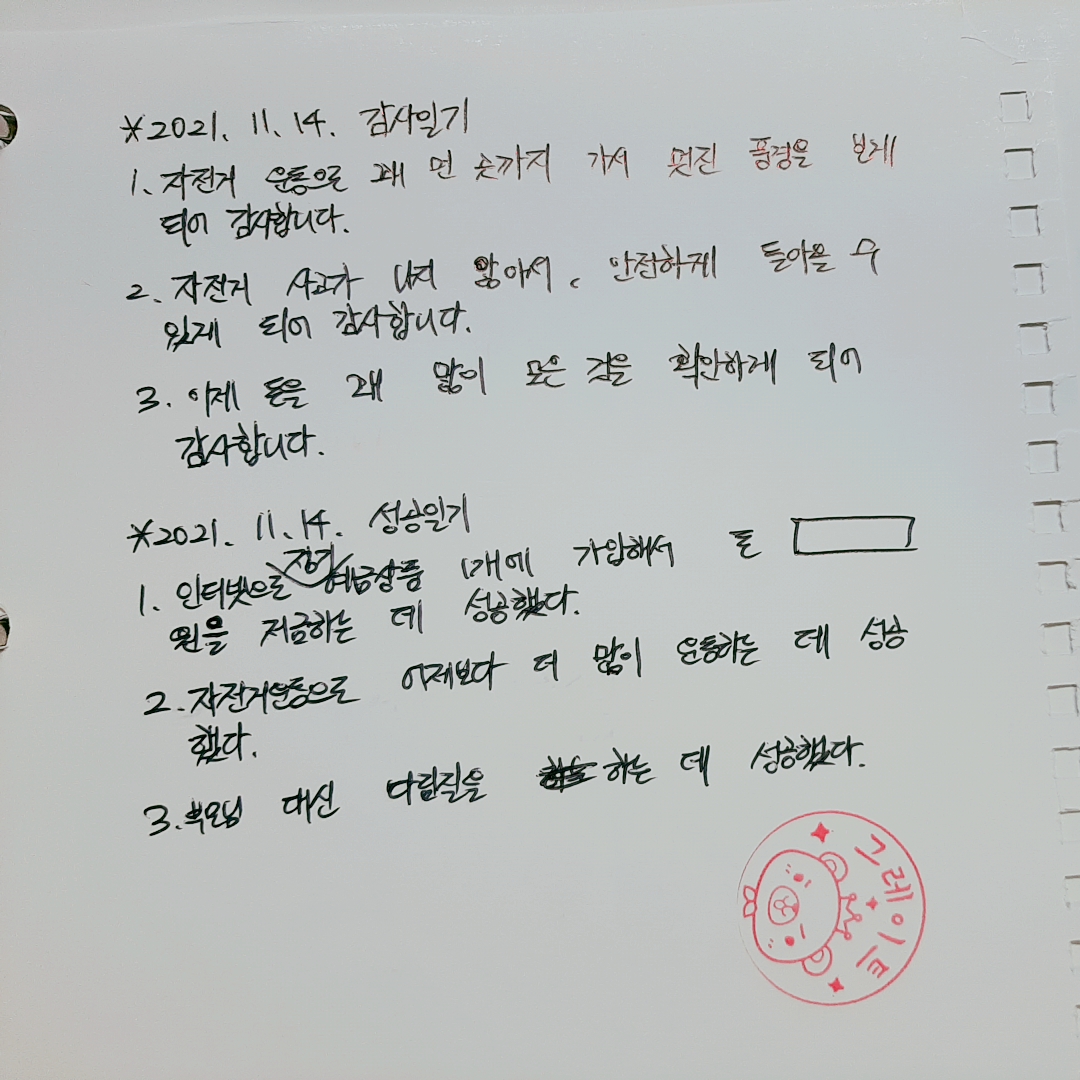 *2021. 11. 14. 감사일기
1. 자전거 운동으로 꽤 먼 곳까지 가서 멋진 풍경을 보게
되어 감사합니다.
2. 자전거 사고가 나지 않아서, 안전하게 돌아올 수
있게 되어 감사합니다.
3. 이제 돈을 꽤 많이 모은 것을 확인하게 되어
감사합니다.
*2021. 11. 14. 성공일기
정기
1. 인터넷으로 예금상품 1개에 가입해서 또
원을 저금하는 데 성공했다.
2. 자전거운동으로 어제보다 더 많이 운동하는 데 성공
했다.
3. 부모님 대신 다림질을 하는 데 성공했다.
그레이트